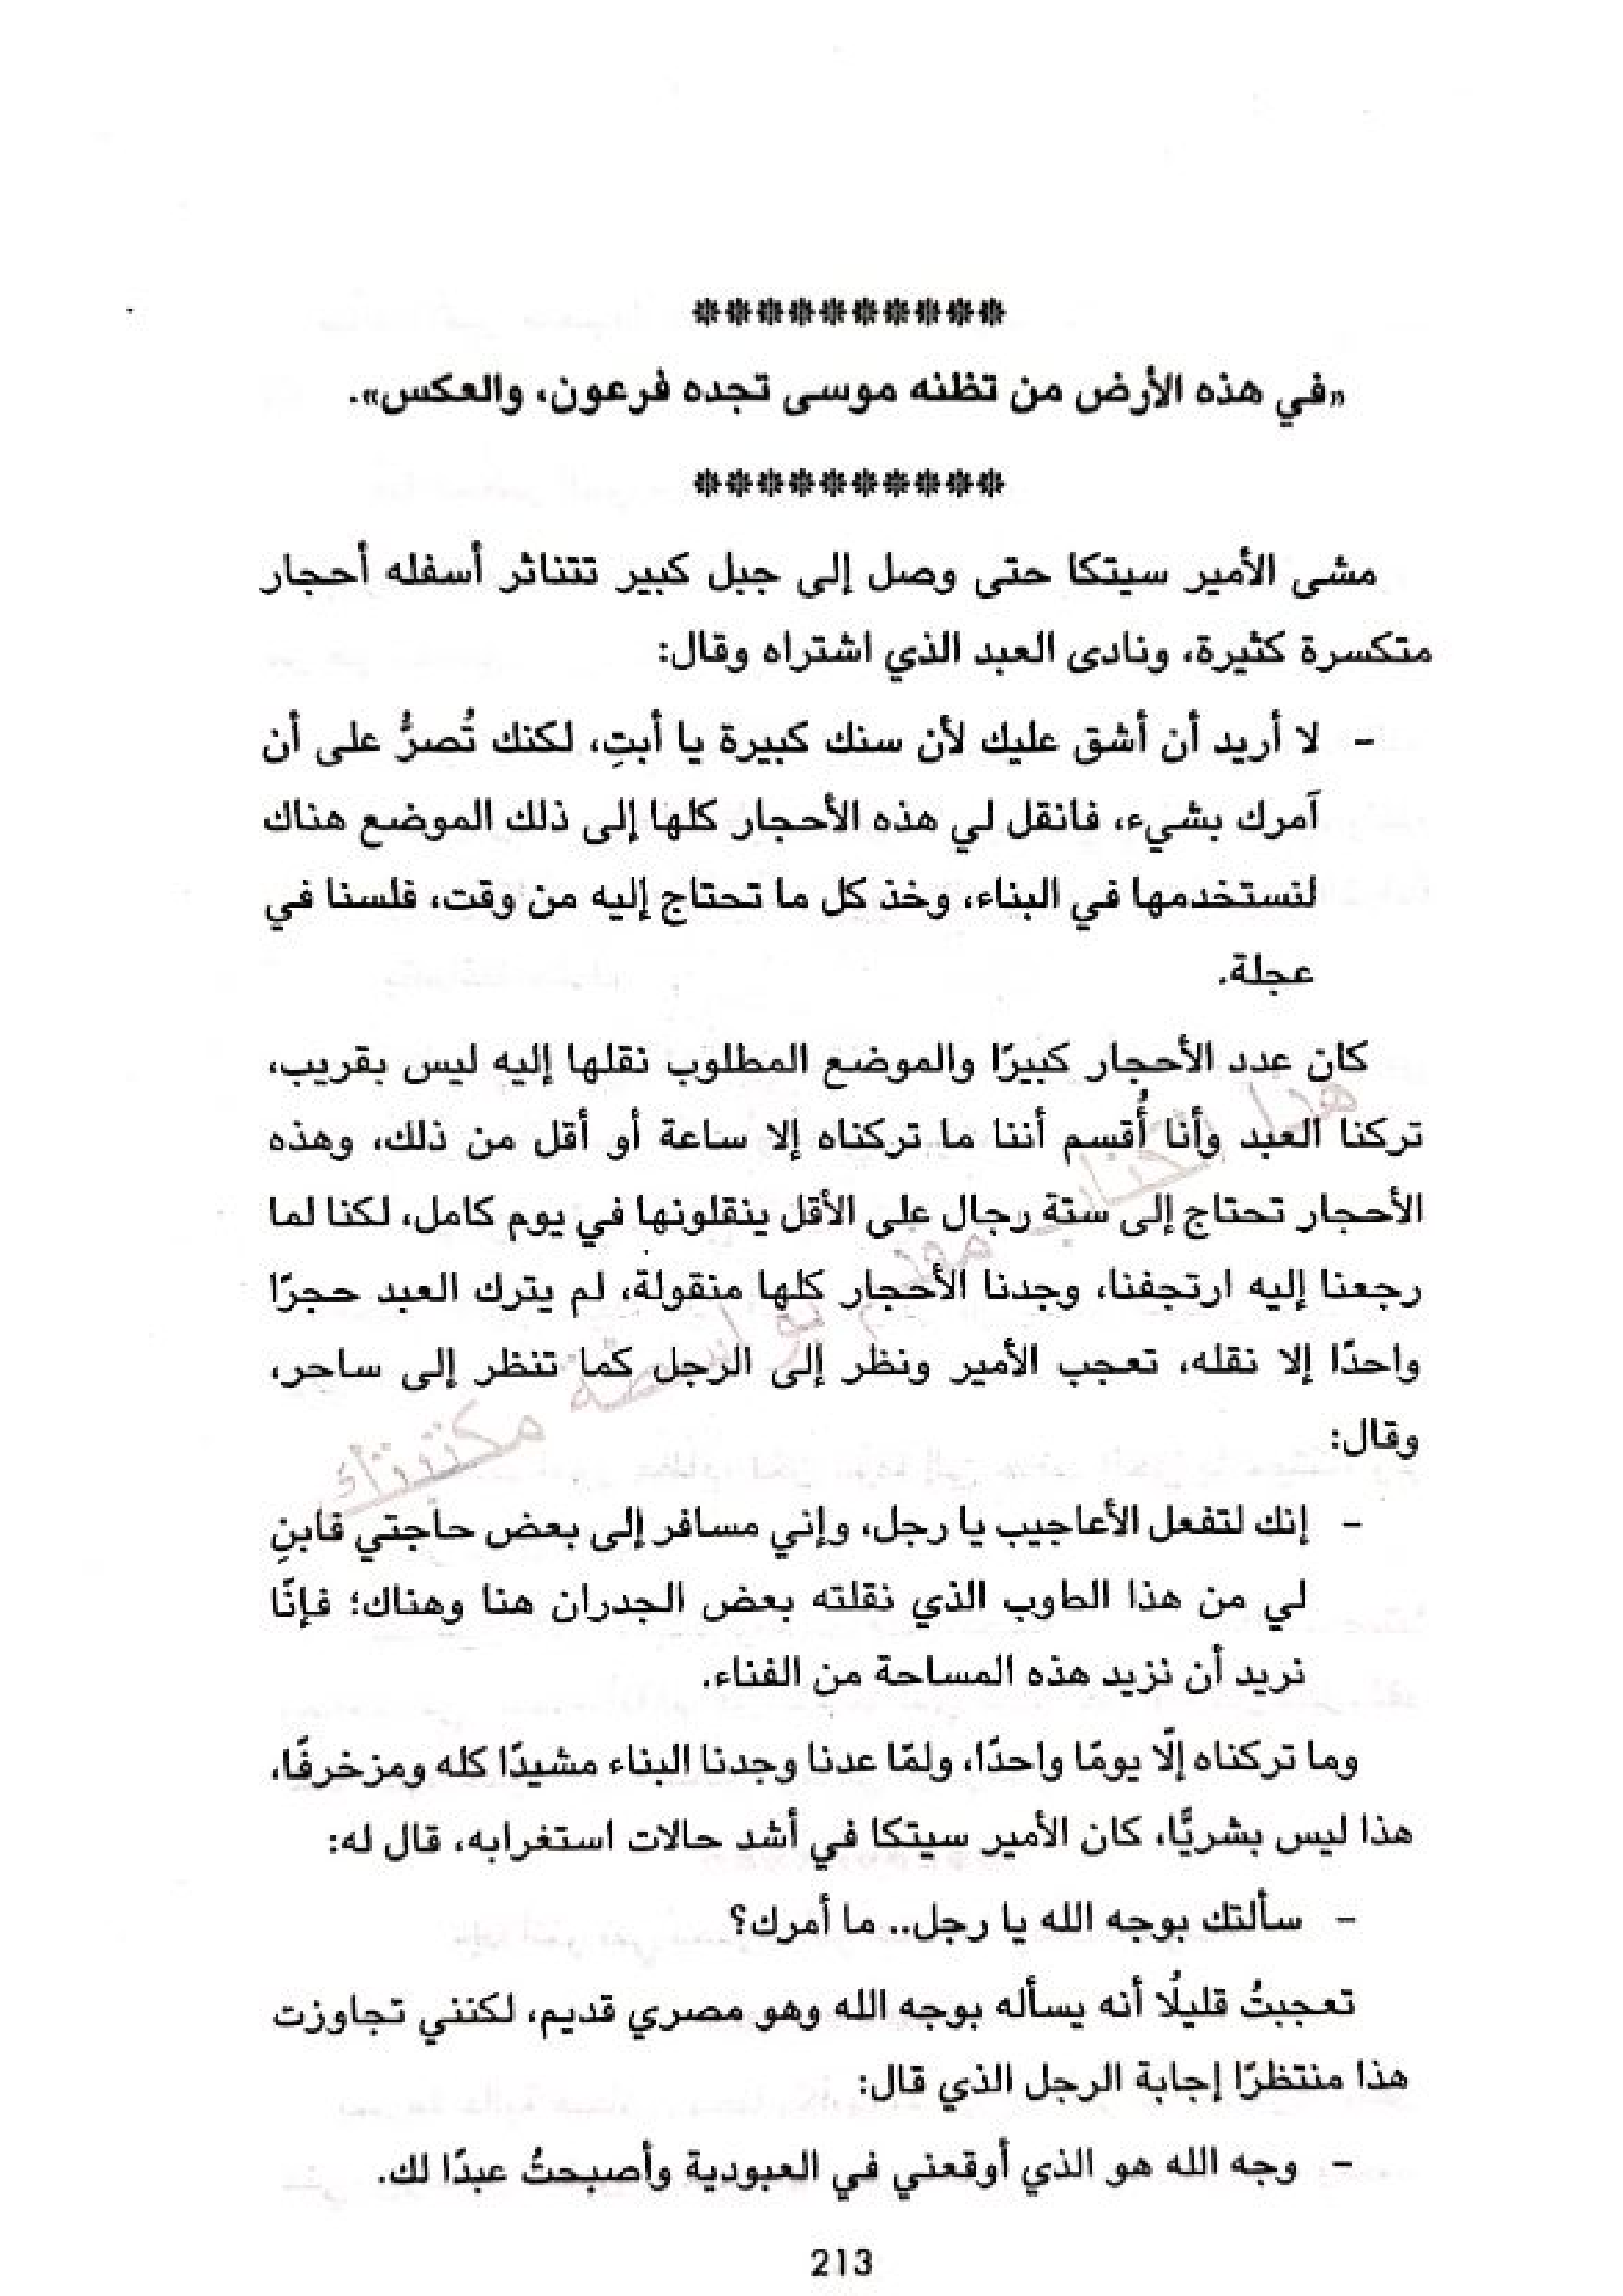 **********
«في هذه الأرض من تظنه موسى تجده فرعون، والعكس».
**********
مشى الأمير سيتكا حتى وصل إلى جبل كبير تتناثر أسفله أحجار
متكسرة كثيرة، ونادى العبد الذي اشتراه وقال:
- لا أريد أن أشق عليك لأن سنك كبيرة يا أبتِ، لكنك تُصرُّ على أن
آمرك بشيء، فانقل لي هذه الأحجار كلها إلى ذلك الموضع هناك
لنستخدمها في البناء، وخذ كل ما تحتاج إليه من وقت، فلسنا في
عجلة.
كان عدد الأحجار كبيرًا والموضع المطلوب نقلها إليه ليس بقريب،
تركنا العبد وأنا أُقسم أننا ما تركناه إلا ساعة أو أقل من ذلك، وهذه
الأحجار تحتاج إلى ستة رجال على الأقل ينقلونها في يوم كامل، لكنا لما
رجعنا إليه ارتجفنا، وجدنا الأحجار كلها منقولة، لم يترك العبد حجرًا
واحدًا إلا نقله، تعجب الأمير ونظر إلى الرجل كما تنظر إلى ساحر،
وقال:
- إنك لتفعل الأعاجيب يا رجل، وإني مسافر إلى بعض حاجتي قابنِ
لي من هذا الطوب الذي نقلته بعض الجدران هنا وهناك؛ فإنَّا
نريد أن نزيد هذه المساحة من الفناء.
وما تركناه إلّا يومًا واحدًا، ولمّا عدنا وجدنا البناء مشيدًا كله ومزخرفًا،
هذا ليس بشريًّا، كان الأمير سيتكا في أشد حالات استغرابه، قال له:
- سألتك بوجه الله يا رجل.. ما أمرك؟
تعجبتُ قليلًا أنه يسأله بوجه الله وهو مصري قديم، لكنني تجاوزت
هذا منتظرًا إجابة الرجل الذي قال:
- وجه الله هو الذي أوقعني في العبودية وأصبحتُ عبدًا لك.
213
هذا الكتاب مقدم بواسطة مكتبتك